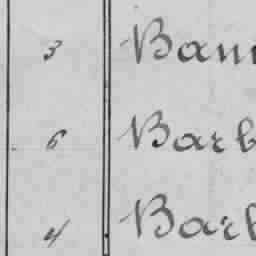 3 Bann
6 Barb
4 Barb